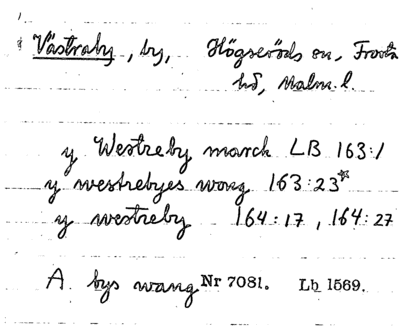 Västraby, by, Högseröds sn, Frosta
hd, Malm. l.
y Westreby march LB 163:1
y westrebyes wong 163:23*
y westreby 164:17, 164:27
A bys wang Nr 7081. Lb 1569.